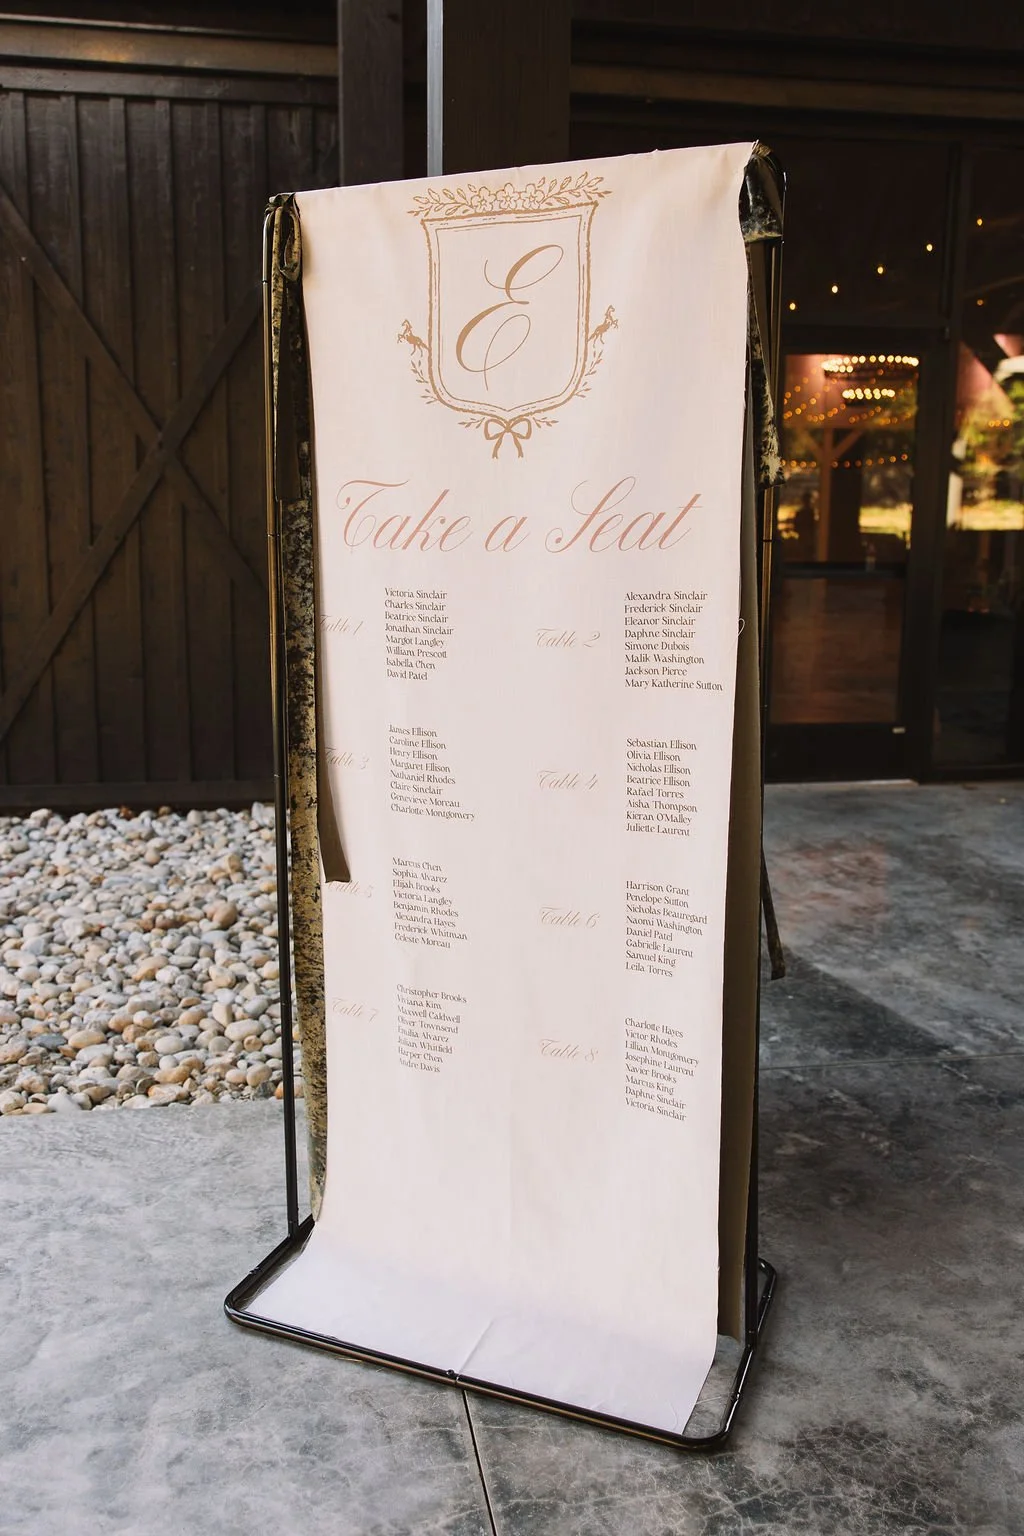 E
Take a Seat
Table 1
Victoria Sinclair
Charles Sinclair
Beatrice Sinclair
Jonathan Sinclair
Margot Langley
William Prescott
Isabella Chen
David Patel
Table 2
Alexandra Sinclair
Frederick Sinclair
Eleanor Sinclair
Daphne Sinclair
Simone Dubois
Malik Washington
Jackson Pierce
Mary Katherine Sutton
Table 3
James Ellison
Caroline Ellison
Henry Ellison
Margaret Ellison
Nathaniel Rhodes
Claire Sinclair
Genevieve Moreau
Charlotte Montgomery
Table 4
Sebastian Ellison
Olivia Ellison
Nicholas Ellison
Beatrice Ellison
Rafael Torres
Aisha Thompson
Kieran O'Malley
Juliette Laurent
Table 5
Marcus Chen
Sophia Alvarez
Elijah Brooks
Victoria Langley
Benjamin Rhodes
Alexandra Hayes
Frederick Whitman
Celeste Moreau
Table 6
Harrison Grant
Penelope Sutton
Nicholas Beauregard
Naomi Washington
Daniel Patel
Gabrielle Laurent
Samuel King
Leila Torres
Table 7
Christopher Brooks
Viviana Kim
Maxwell Caldwell
Oliver Townsend
Emilia Alvarez
Julian Whitfield
Harper Chen
Andre Davis
Table 8
Charlotte Hayes
Victor Rhodes
Lillian Montgomery
Josephine Laurent
Xavier Brooks
Marcus King
Daphne Sinclair
Victoria Sinclair